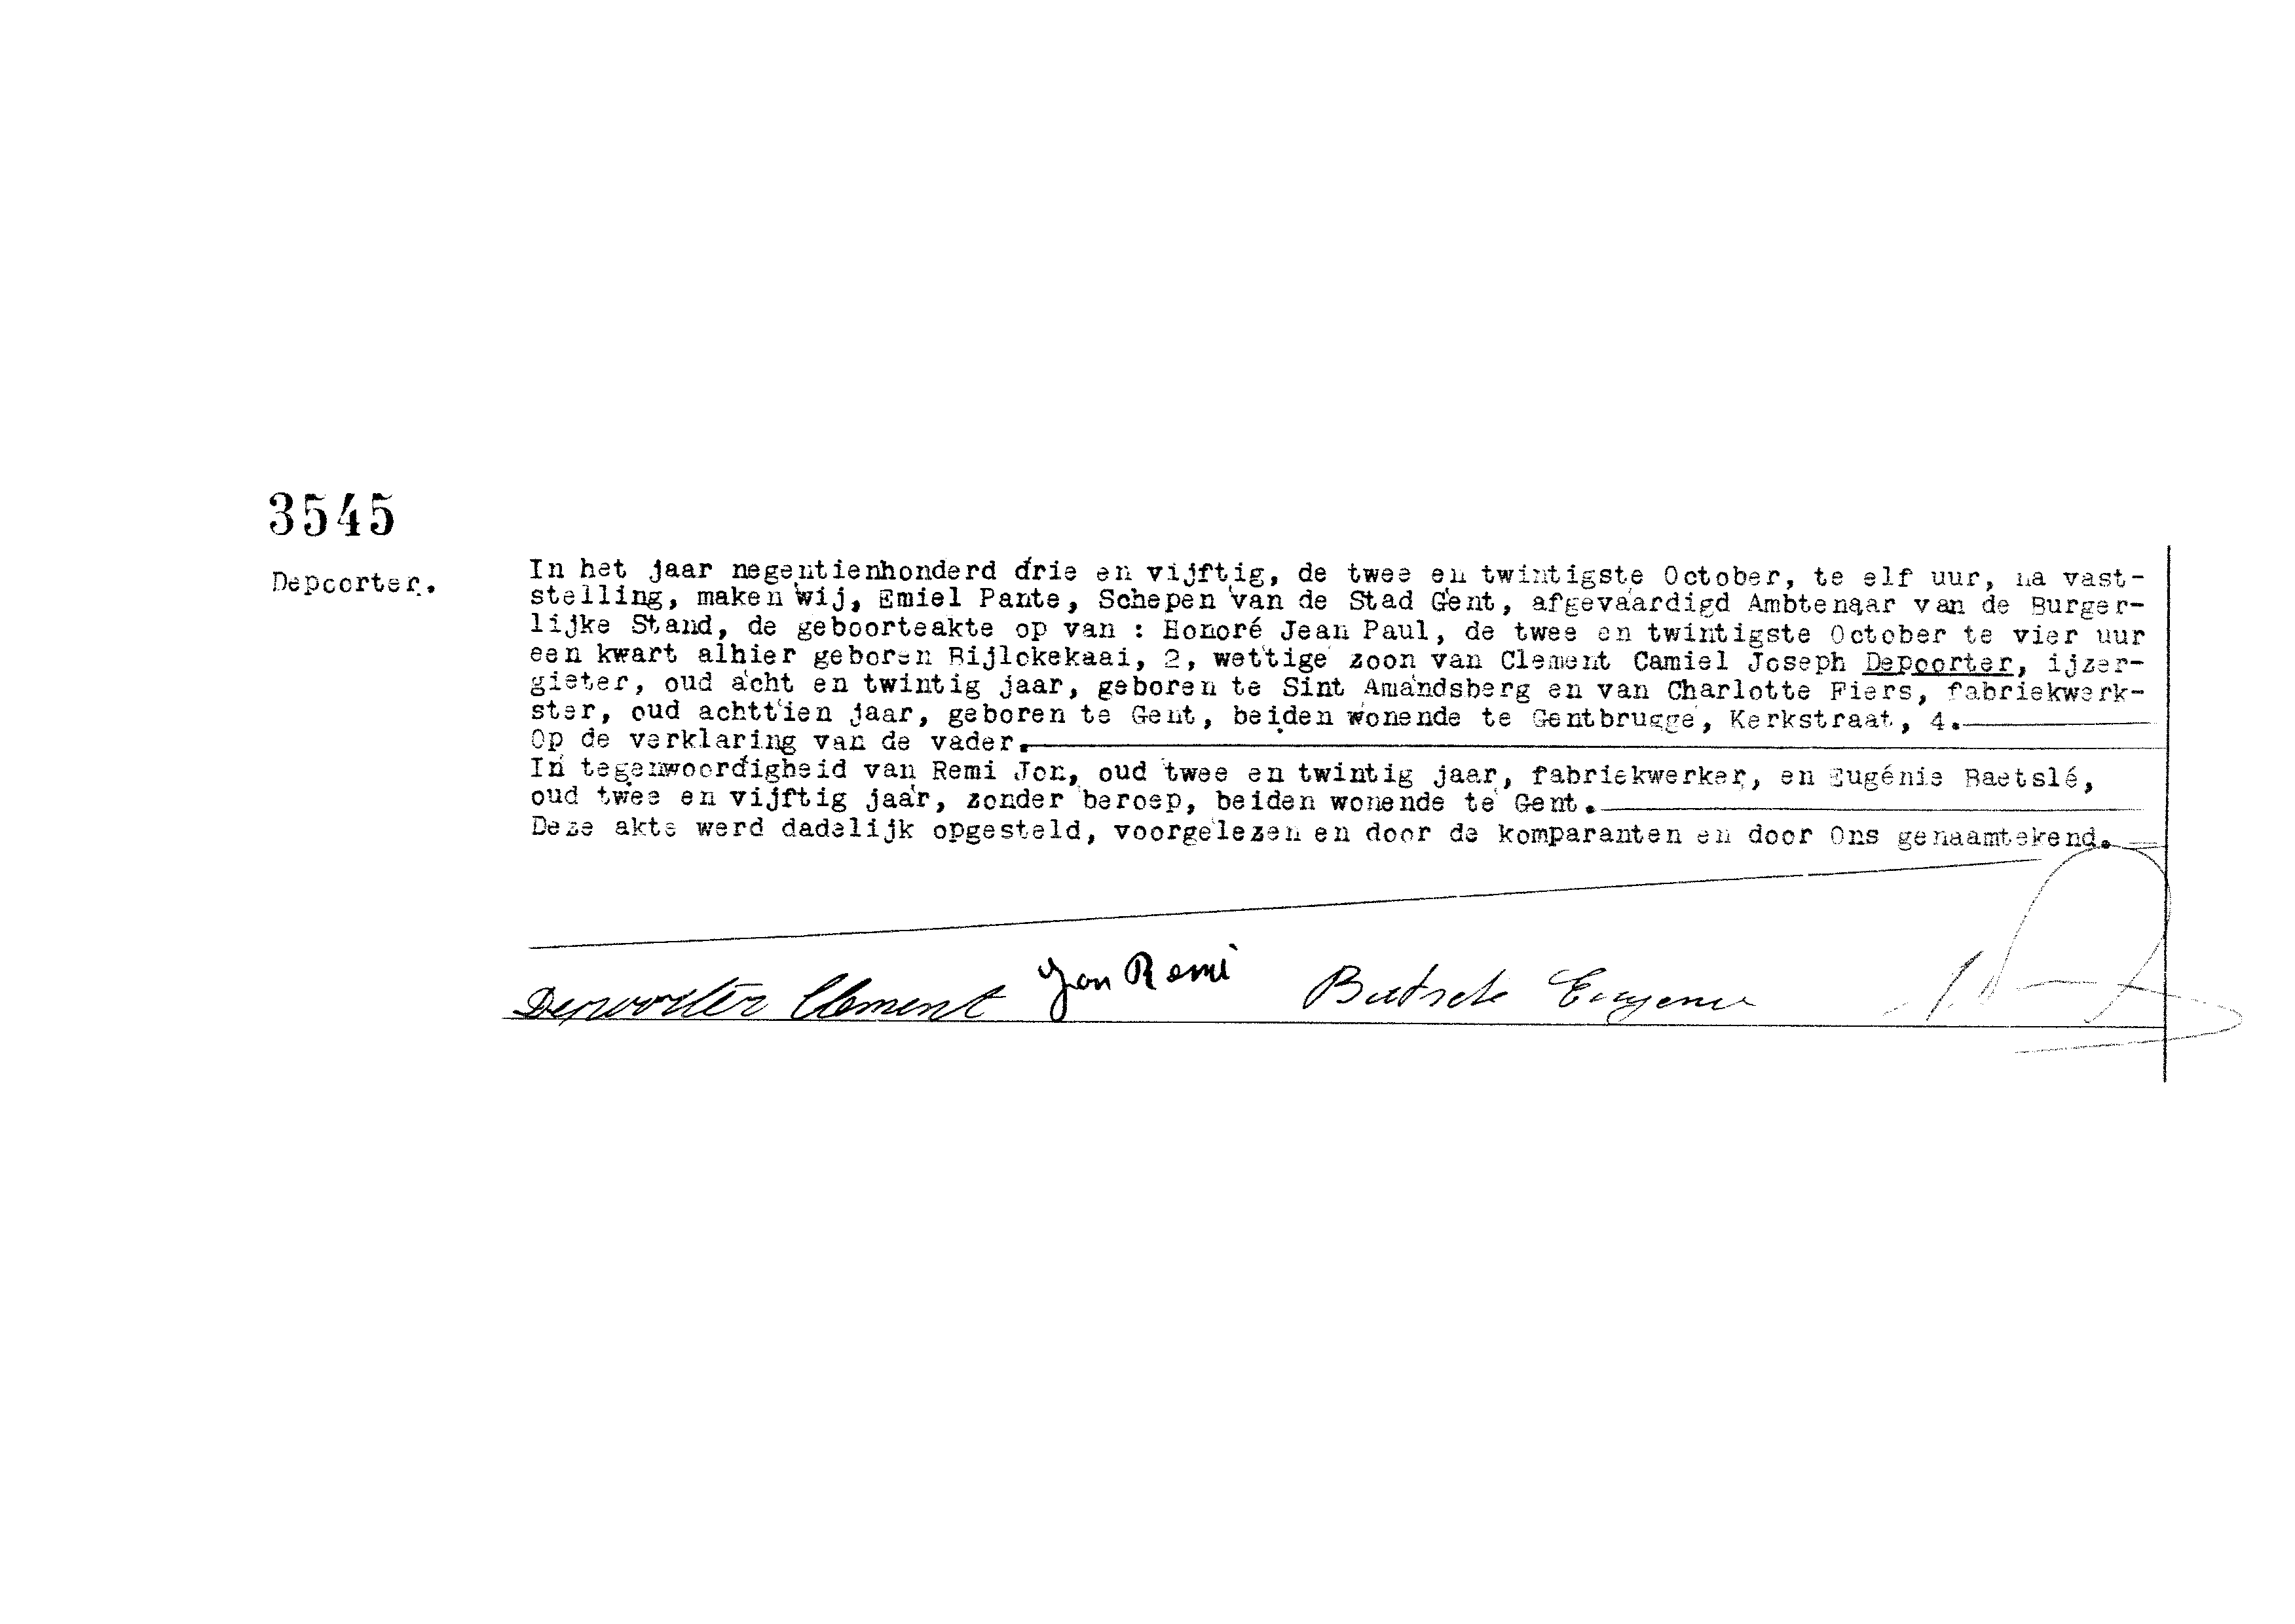 3545
Depoorter.
In het jaar negentienhonderd drie en vijftig, de twee en twintigste October, te elf uur, na vast-
stelling, maken wij, Emiel Pante, Schepen van de Stad Gent, afgevaardigd Ambtenaar van de Burger-
lijke Stand, de geboorteakte op van : Honoré Jean Paul, de twee en twintigste October te vier uur
een kwart alhier geboren Bijlokekaai, 2, wettige zoon van Clement Camiel Joseph Depoorter, ijzer-
gieter, oud acht en twintig jaar, geboren te Sint Amandsberg en van Charlotte Fiers, fabriekwerk-
ster, oud achttien jaar, geboren te Gent, beiden wonende te Gentbrugge, Kerkstraat, 4.
Op de verklaring van de vader.
In tegenwoordigheid van Remi Jon, oud twee en twintig jaar, fabriekwerker, en Eugénie Baetslé,
oud twee en vijftig jaar, zonder beroep, beiden wonende te Gent.
Deze akte werd dadelijk opgesteld, voorgelezen en door de komparanten en door Ons genaamtekend.
Depoorter Clement Jon Remi